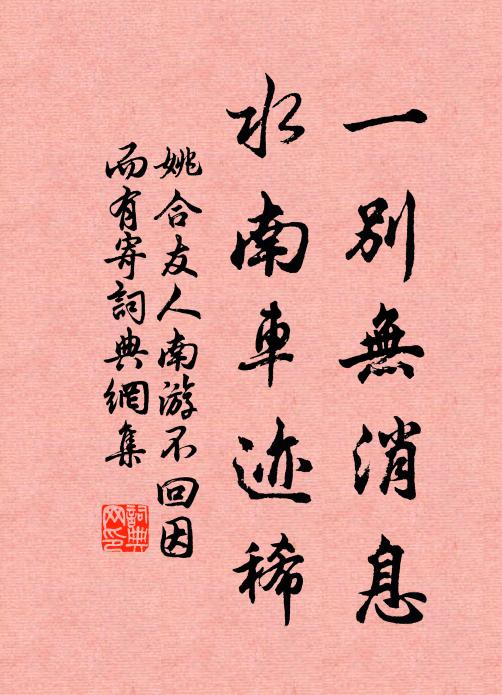 一別無消息
水南車迹稀
姚合友人南游不回因
而有寄詞典網集
詞典网印